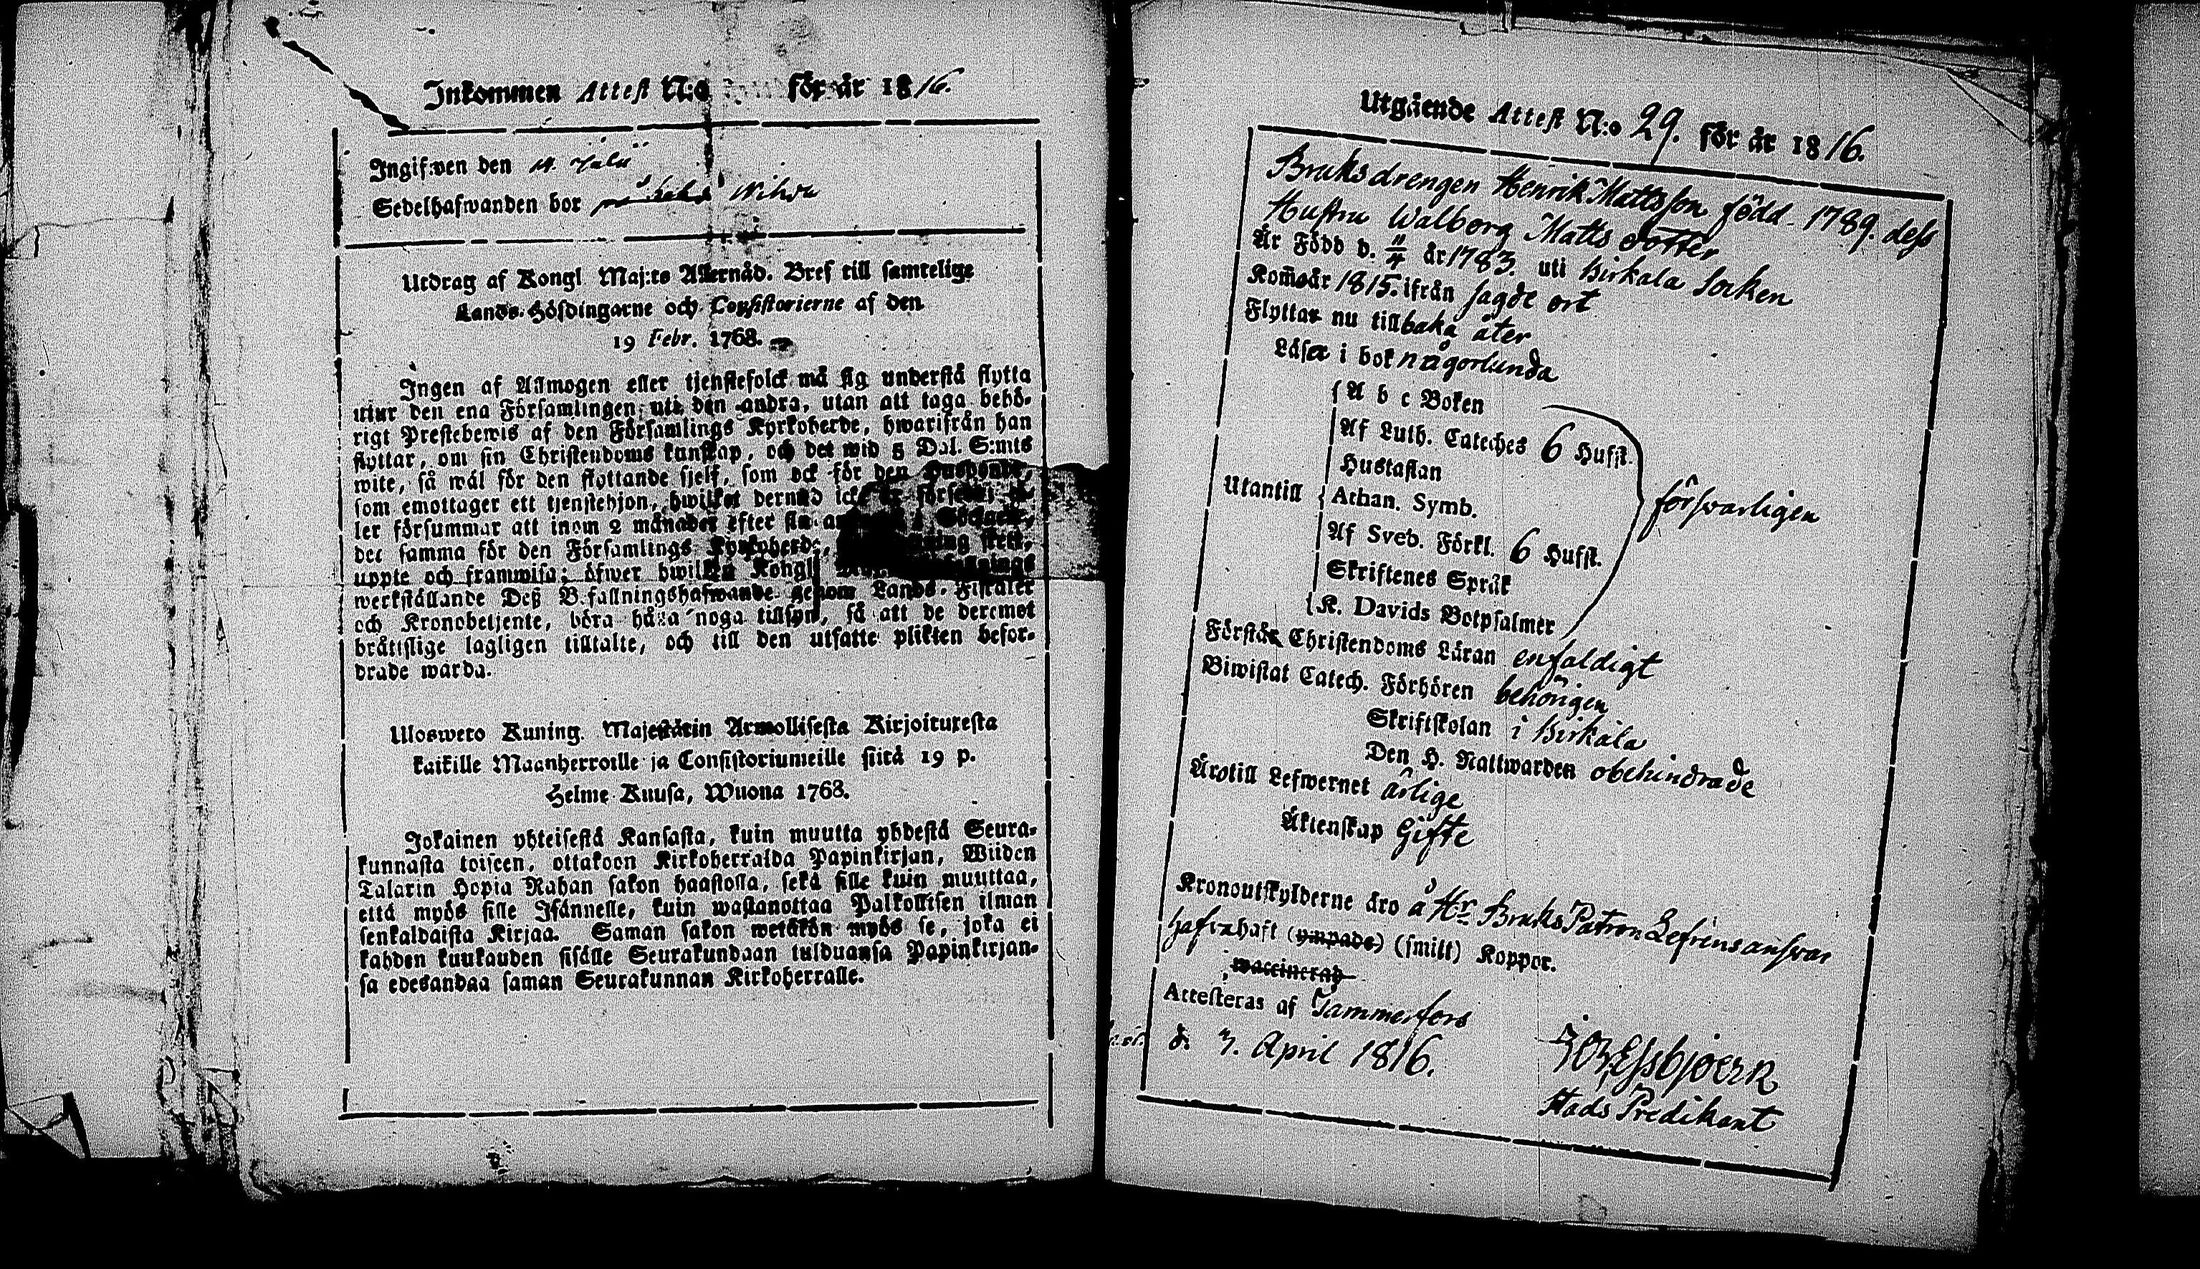 Inkommen Attest N:o för år 1816.
Ingifwen den 14. Julii
Sedelhafwanden bor Nihva
Utdrag af Kongl Maj:ts Allernåd. Bref till samtelige
Lands-Höfdingarne och Consistorierne af den
19 Febr. 1768.
Ingen af Allmogen eller tjenstefolck må sig understå flytta
utur den ena Församlingen uti den andra, utan att taga behö-
rigt Prestebewis af den Församlings Kyrkoherde, hwarifrån han
flyttar, om sin Christendoms kunskap, och det wid 5 Dal. S:mts
wite, så wäl för den flyttande sjelf, som ock för den Husbonde,
som emottager ett tjenstehjon, hwilket dermed icke är försedt el-
ler försummar att inom 2 månader efter sin
det samma för den Församlings Kyrkoherde,
uppte och framwisa; öfwer hwilken Kongl
werkställande Deß B.fallningshafwande genom Lands-Fiscaler
och Kronobetjente, böra hafwa noga tillsyn, så att de deremot
bråttslige lagligen tilltalte, och till den utsatte plikten befor-
drade warda.
Ulosweto Kuning. Majestätin Armollisesta Kirjoituxesta
kaikille Maanherroille ja Consistoriumeille siitä 19 p.
Helme Kuusa, Wuona 1768.
Jokainen yhteisestä Kansasta, kuin muutta yhdestä Seura-
kunnasta toiseen, ottakoon Kirkoherralda Papinkirjan, Wiiden
Talarin Hopia Rahan sakon haastolla, sekä sille kuin muuttaa,
että myös sille Isännelle, kuin wastanottaa Palkollisen ilman
senkaldaista Kirjaa. Saman sakon wetäkön myös se, joka ei
kahden kuukauden sisälle Seurakundaan tulduansa Papinkirjan-
sa edesandaa saman Seurakunnan Kirkoherralle.
Utgående Attest N:o 29. för år 1816.
Bruksdrengen Henrik Mattsson född 1789. dess
Hustru Walborg Matts dotter
Är Född d. 11/4 år 1783. uti Birkala Socken
Kom̄ år 1815. ifrån sagde ort
Flyttar nu tillbaka åter
Läser i bok någorlunda
Utantill
A b c Boken
Af Luth. Cateches 6 Hufst.
Hustaflan
Athan. Symb.
Af Sveb. Förkl. 6 Hufst.
Skriftenes Språk
K. Davids Botpsalmer
försvarligen
Förstår Christendoms Läran enfaldigt
Biwistat Catech. Förhören behörigen
Skriftskolan i Birkala
Den H. Nattwarden obehindrade
Äro till Lefwernet ärlige
Äktenskap Gifte
Kronoutskylderne äro å Hr Bruks Patron Lefrens answar
Hafwa haft (ympade) (smitt) Koppor.
waccinerad
Attesteras af Tammerfors
d. 3. April 1816.
Stads Predikant